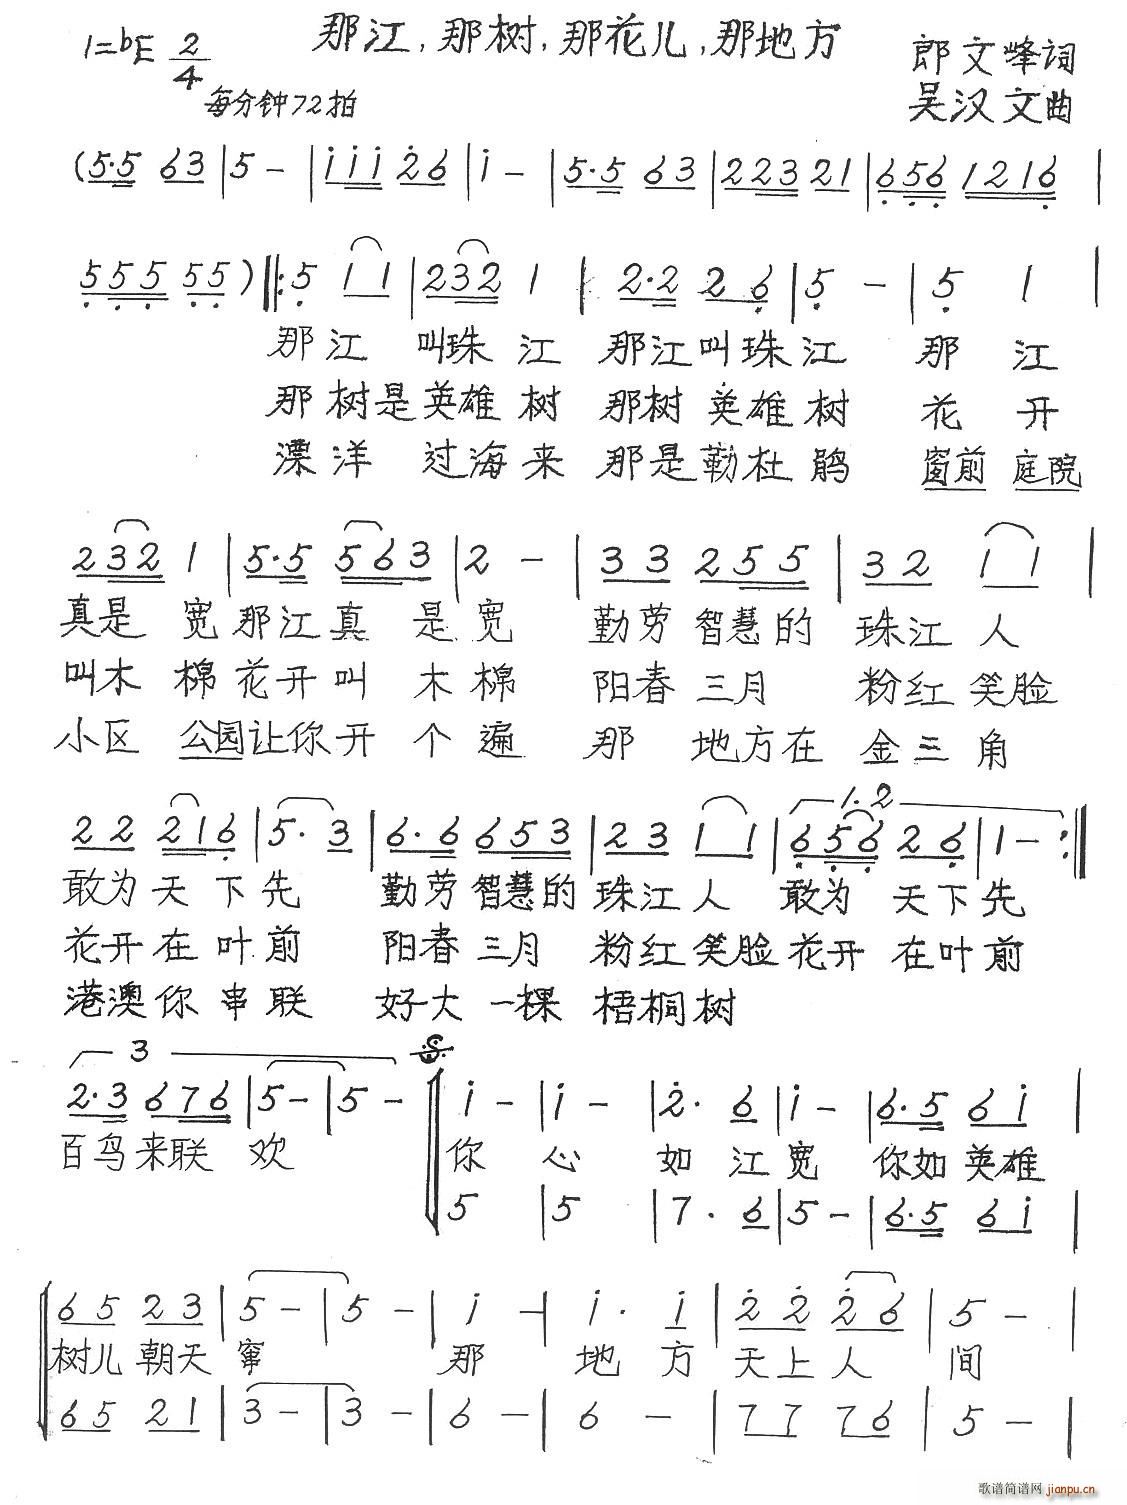 那江,那树,那花儿,那地方
1=bE 2/4
郎文峰词
每分钟72拍
吴汉文曲
(5·5 63 | 5 - | iii 26 | i - | 5·5 63 | 223 21 | 656 1216 |
555 55) ‖: 5 11 | 232 1 | 2·2 26 | 5 - | 5 1 |
那江 叫珠江 那江叫珠江 那 江
那树是英雄树 那树英雄树 花 开
漂洋 过海来 那是勒杜鹃 窗前 庭院
232 1 | 5·5 563 | 2 - | 33 255 | 32 11 |
真是 宽那江真 是宽 勤劳智慧的 珠江人
叫木 棉花开叫 木棉 阳春三月 粉红笑脸
小区 公园让你开 个遍 那 地方在 金三角
1.2
22 216 | 5· 3 | 6·6 653 | 23 11 | 656 26 | 1 - :‖
敢为天下先 勤劳智慧的 珠江人 敢为 天下先
花开在叶前 阳春三月 粉红笑脸花开 在叶前
港澳你串联 好大一棵 梧桐树
3
2·3 676 | 5 - | 5 - ‖ i - | i - | 2· 6 | i - | 6·5 6i |
百鸟来联 欢 你 心 如 江宽 你如英雄
5 | 5 | 7· 6 | 5 - | 6·5 6i |
65 23 | 5 - | 5 - | i - | i· i | 22 26 | 5 - |
树儿朝天窜 那 地 方 天上人 间
65 21 | 3 - | 3 - | 6 - | 6 - | 77 76 | 5 - |
歌谱简谱网 jianpu.cn